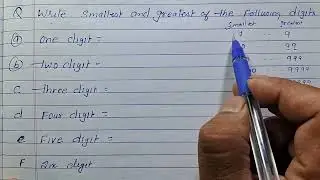 Q Write smallest and greatest of the following digits
Smallest greatest
(a) One digit = 9
(b) Two digit = 99
C Three digit = 999
d Four digit = 9999
e Five digit =
F Six digit